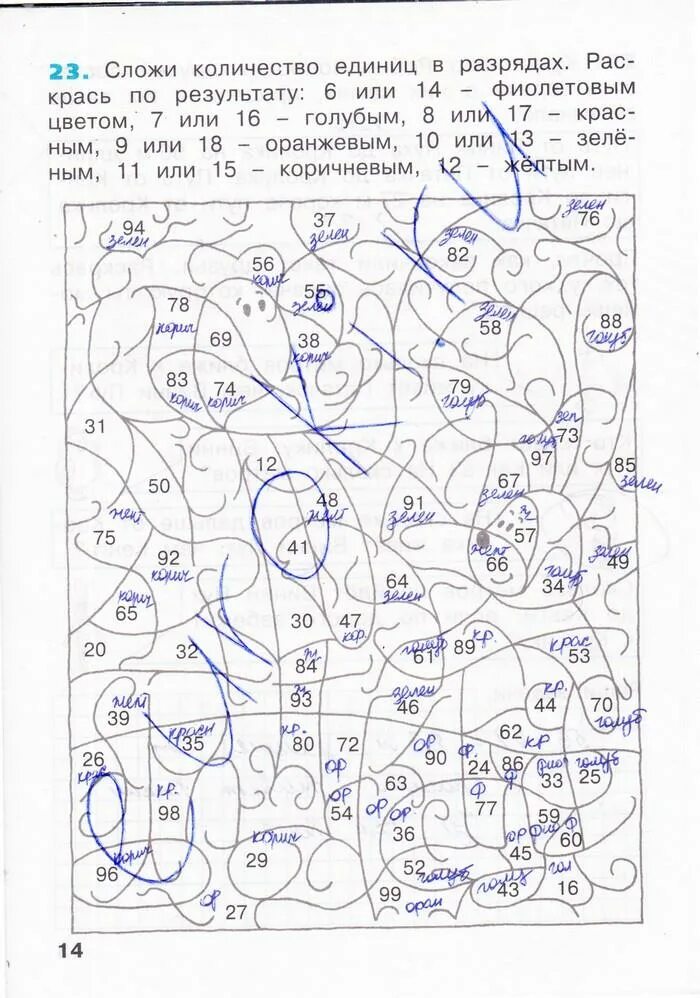 23. Сложи количество единиц в разрядах. Рас-
крась по результату: 6 или 14 – фиолетовым
цветом, 7 или 16 – голубым, 8 или 17 – крас-
ным, 9 или 18 – оранжевым, 10 или 13 – зелё-
ным, 11 или 15 – коричневым, 12 – жёлтым.
94 37 76
зелен зелен зелен
зелен
56 82
корич
55
зелен
78 58 88
корич зелен голуб
69 38
корич
83 74 79
корич корич голуб
31 зел
73
голуб
12 97 85
зелен
50 67
зелен
48 91
жел зелен
75 41 57
92 жел 66 49
корич зелен
65 64 34
корич зелен голуб
30 47
кор.
20 32 84 61 89 53
ж. голуб кр. крас
39 93 46 44 70
жел ж. зелен кр. голуб
35 80 72 62
красн кр. ор кр
26 90 24 86
крас ор ф.
33 25
фиол голуб
98 54 63 77
кр. ор ф
36 59
ор ор.
45 60
ор ф
96 29 52 43 16
корич корич голуб голуб гол
27 99
ор оран
14